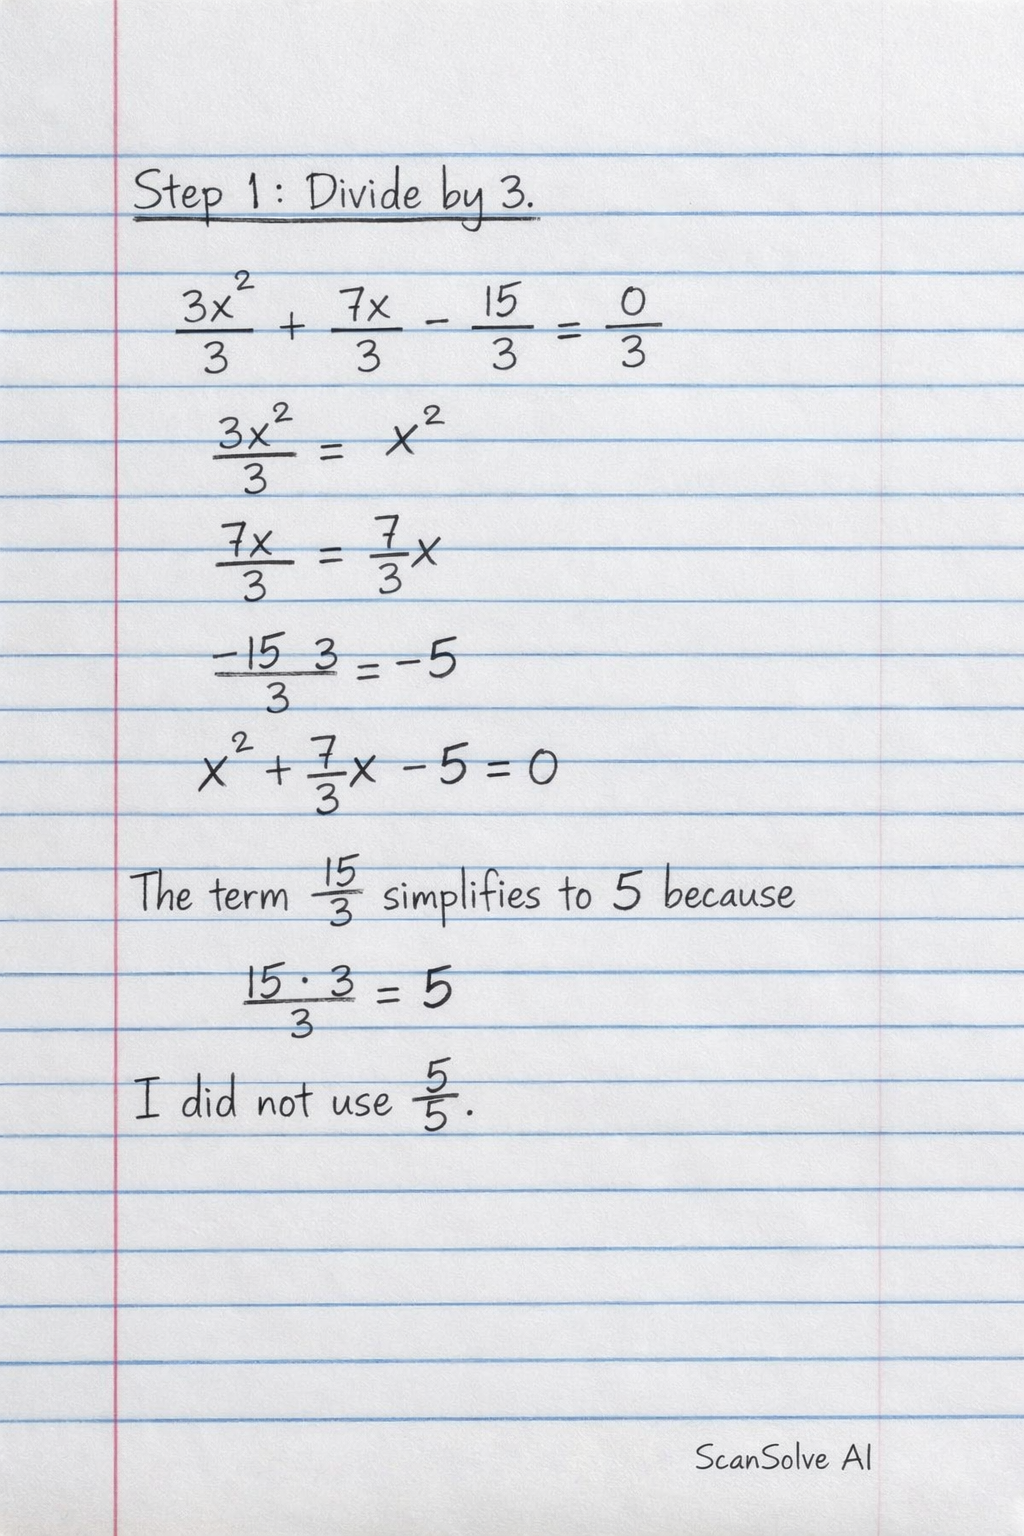 Step 1: Divide by 3.
3x²/3 + 7x/3 - 15/3 = 0/3
3x²/3 = x²
7x/3 = 7/3 x
-15 3/3 = -5
x² + 7/3 x - 5 = 0
The term 15/3 simplifies to 5 because
15 · 3/3 = 5
I did not use 5/5.
ScanSolve AI